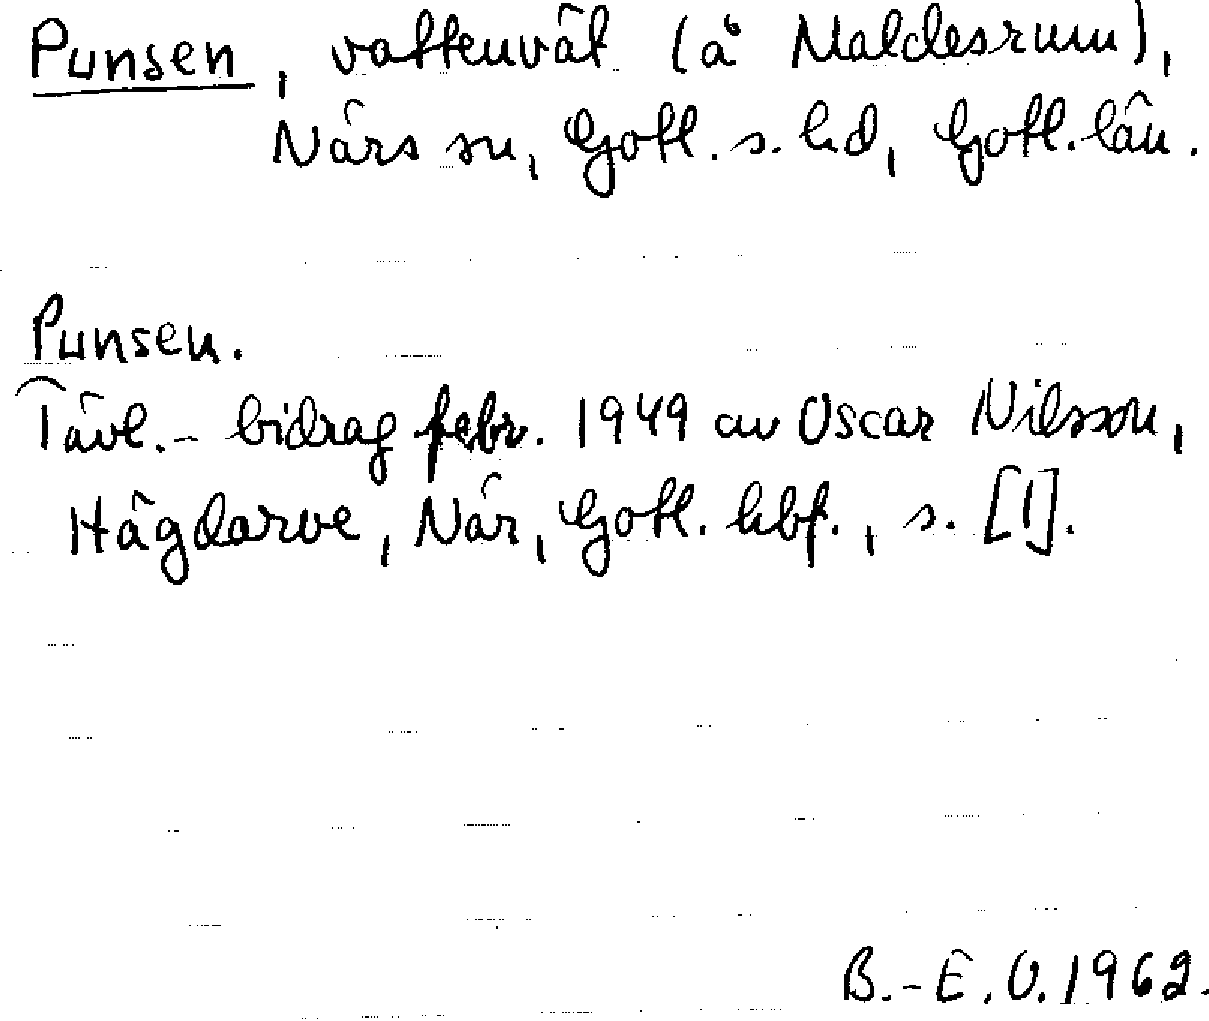 Punsen, vattenvät (å Maldesrum),
Närs sn, Gotl. s. hd, Gotl. län.
Punsen.
Tävl.- bidrag febr. 1949 av Oscar Nilsson,
Hägdarve, När, Gotl. hbf., s. [1].
B.-E.O. 1962.